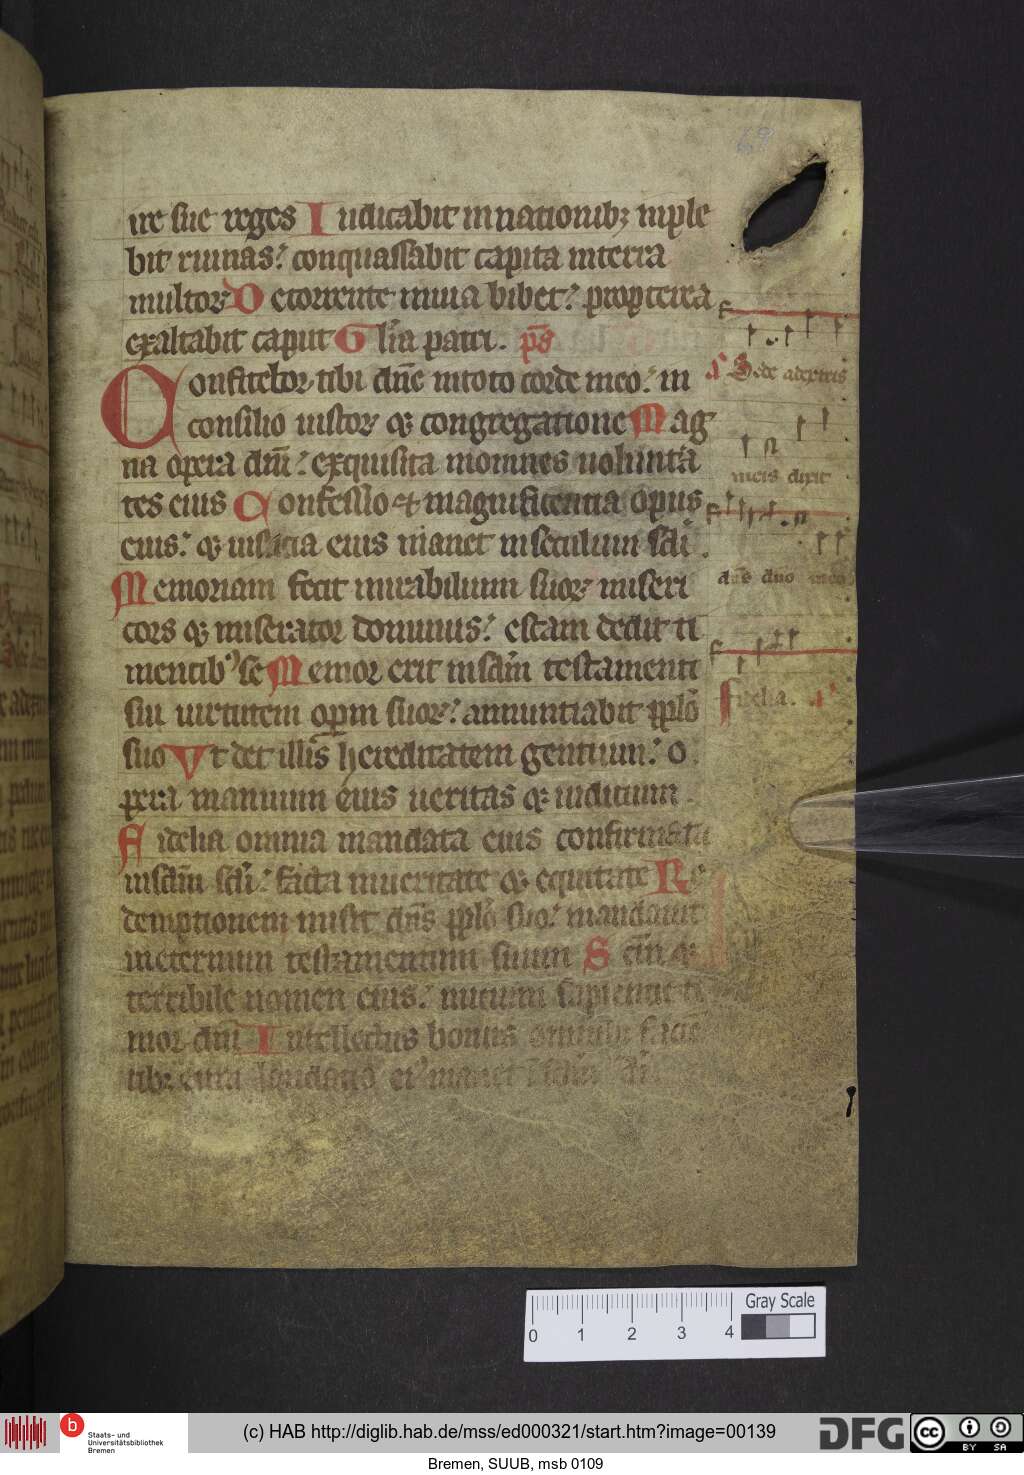 69
ire sue reges Iudicabit in nationib; inple
bit ruinas: conquassabit capita in terra
multor De torrente in uia bibet: propterea
exaltabit caput Glia patri. ps
Confitebor tibi dne in toto corde meo: in
consilio iustor et congregatione Mag
na opera dni: exquisita in omnes uolunta
tes eius Confessio et magnificentia opus
eius: et iusticia eius manet in seculum scli.
Memoriam fecit mirabilium suor miseri
cors et miserator dominus: escam dedit ti
mentib' se Memor erit in sclm testamenti
sui uirtutem opm suor: annuntiabit pplo
suo Vt det illis hereditatem gentium: o
pera manuum eius ueritas et iudicium.
Fidelia omnia mandata eius confirmata
in sclm scli: facta in ueritate et equitate Re
demptionem misit dns pplo suo: mandauit
in eternum testamentum suum Sctm et
terribile nomen eius: initium sapientie ti
mor dni Intellectus bonus omnib; facie
tib; eum laudatio ei' manet
Sede a dextris
meis dixit
dns dno meo
Fidelia.
0 1 2 3 4
Gray Scale
b Staats- und
Universitätsbibliothek
Bremen
(c) HAB http://diglib.hab.de/mss/ed000321/start.htm?image=00139
DFG
cc BY SA
Bremen, SUUB, msb 0109